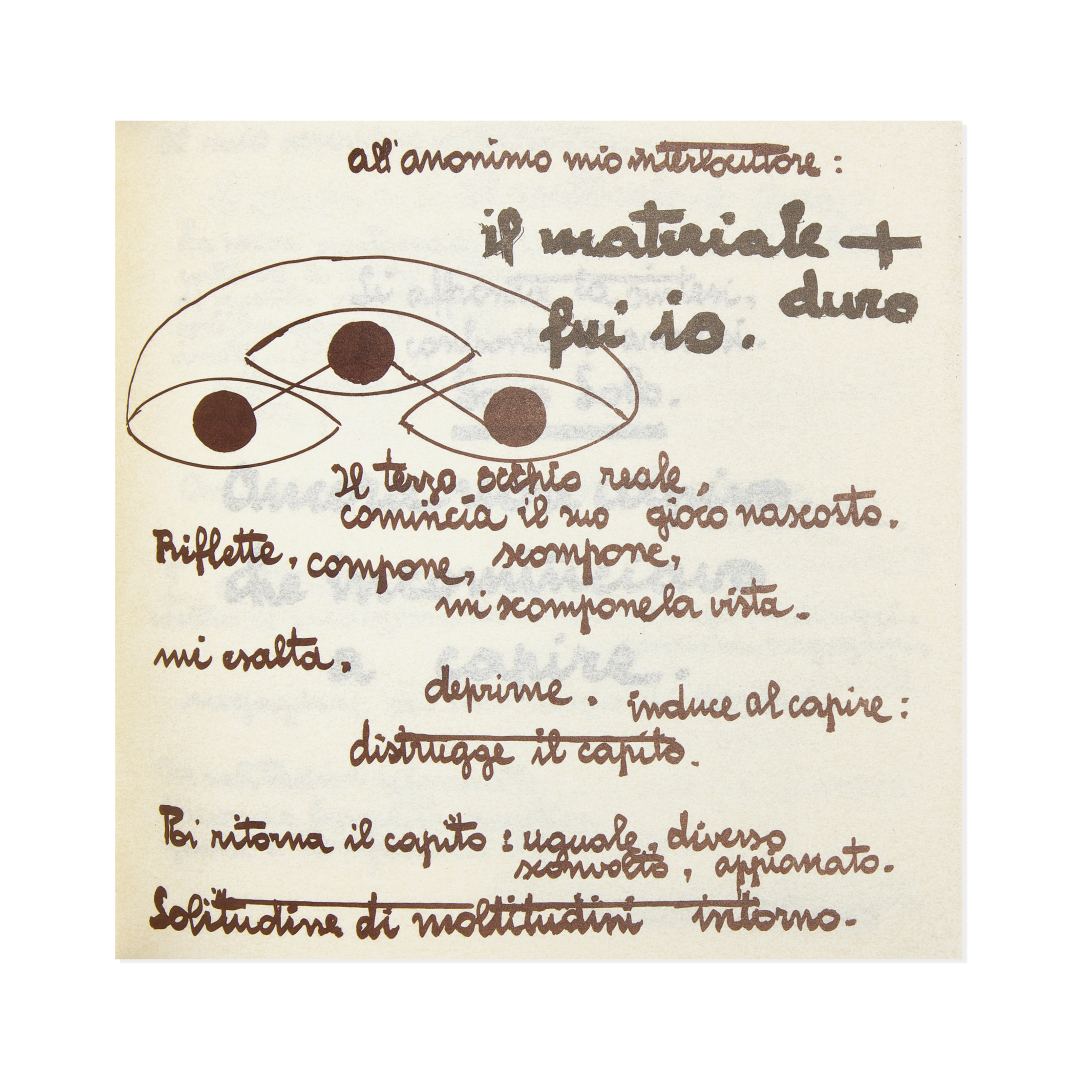 all'anonimo mio interlocutore:
il materiale +
duro
fui io.
Il terzo occhio reale,
comincia il suo gioco nascosto.
Riflette, compone, scompone,
mi scompone la vista.
mi esalta,
deprime. induce al capire:
distrugge il capito.
Poi ritorna il capito: uguale, diverso
sconvolto, appianato.
Solitudine di moltitudini intorno.